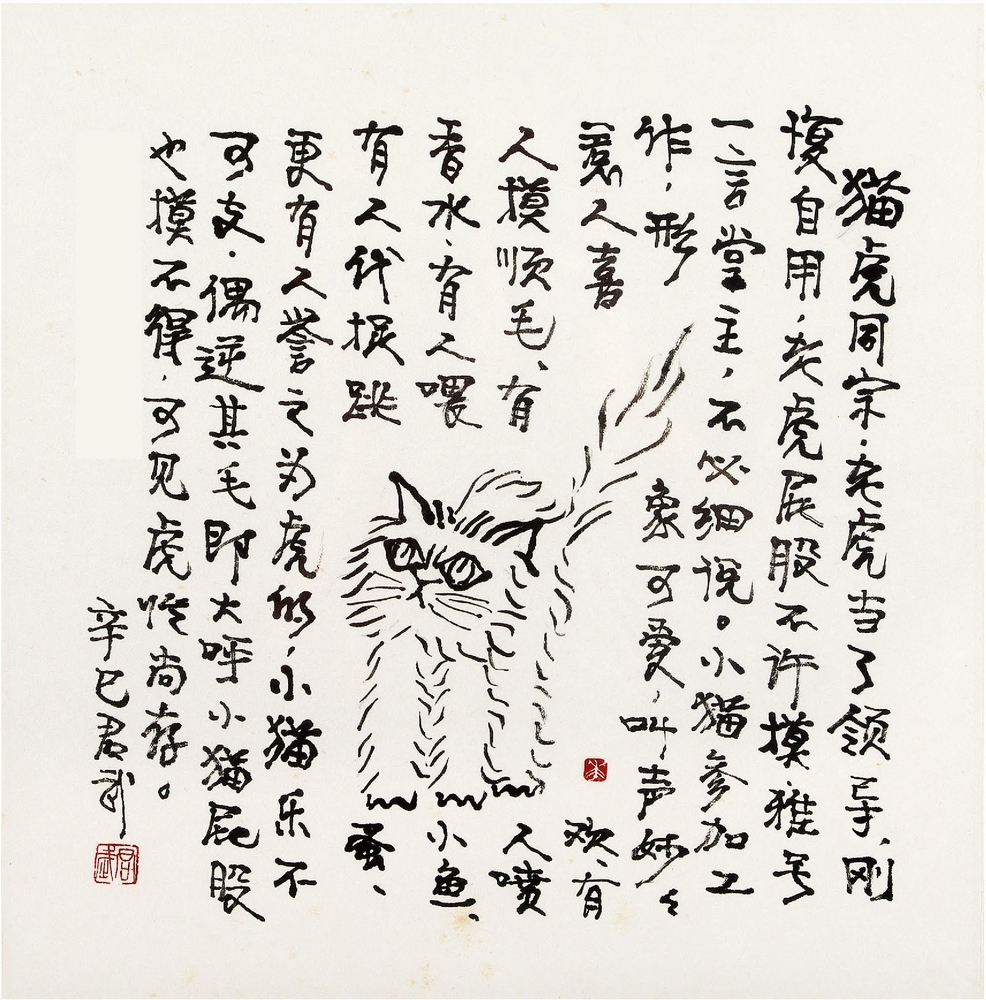 猫虎同宗，老虎当了领导，刚
愎自用，老虎屁股不许摸，雅号
一言堂主，不必细说。小猫参加工
作，形象可爱，叫声妙々
惹人喜欢，有
人摸顺毛、有人喷
香水、有人喂小鱼、
有人代捉跳蚤、
更有人誉之为虎师，小猫乐不
可支，偶逆其毛即大呼小猫屁股
也摸不得，可见虎性尚存。
辛巳君武
君武
华